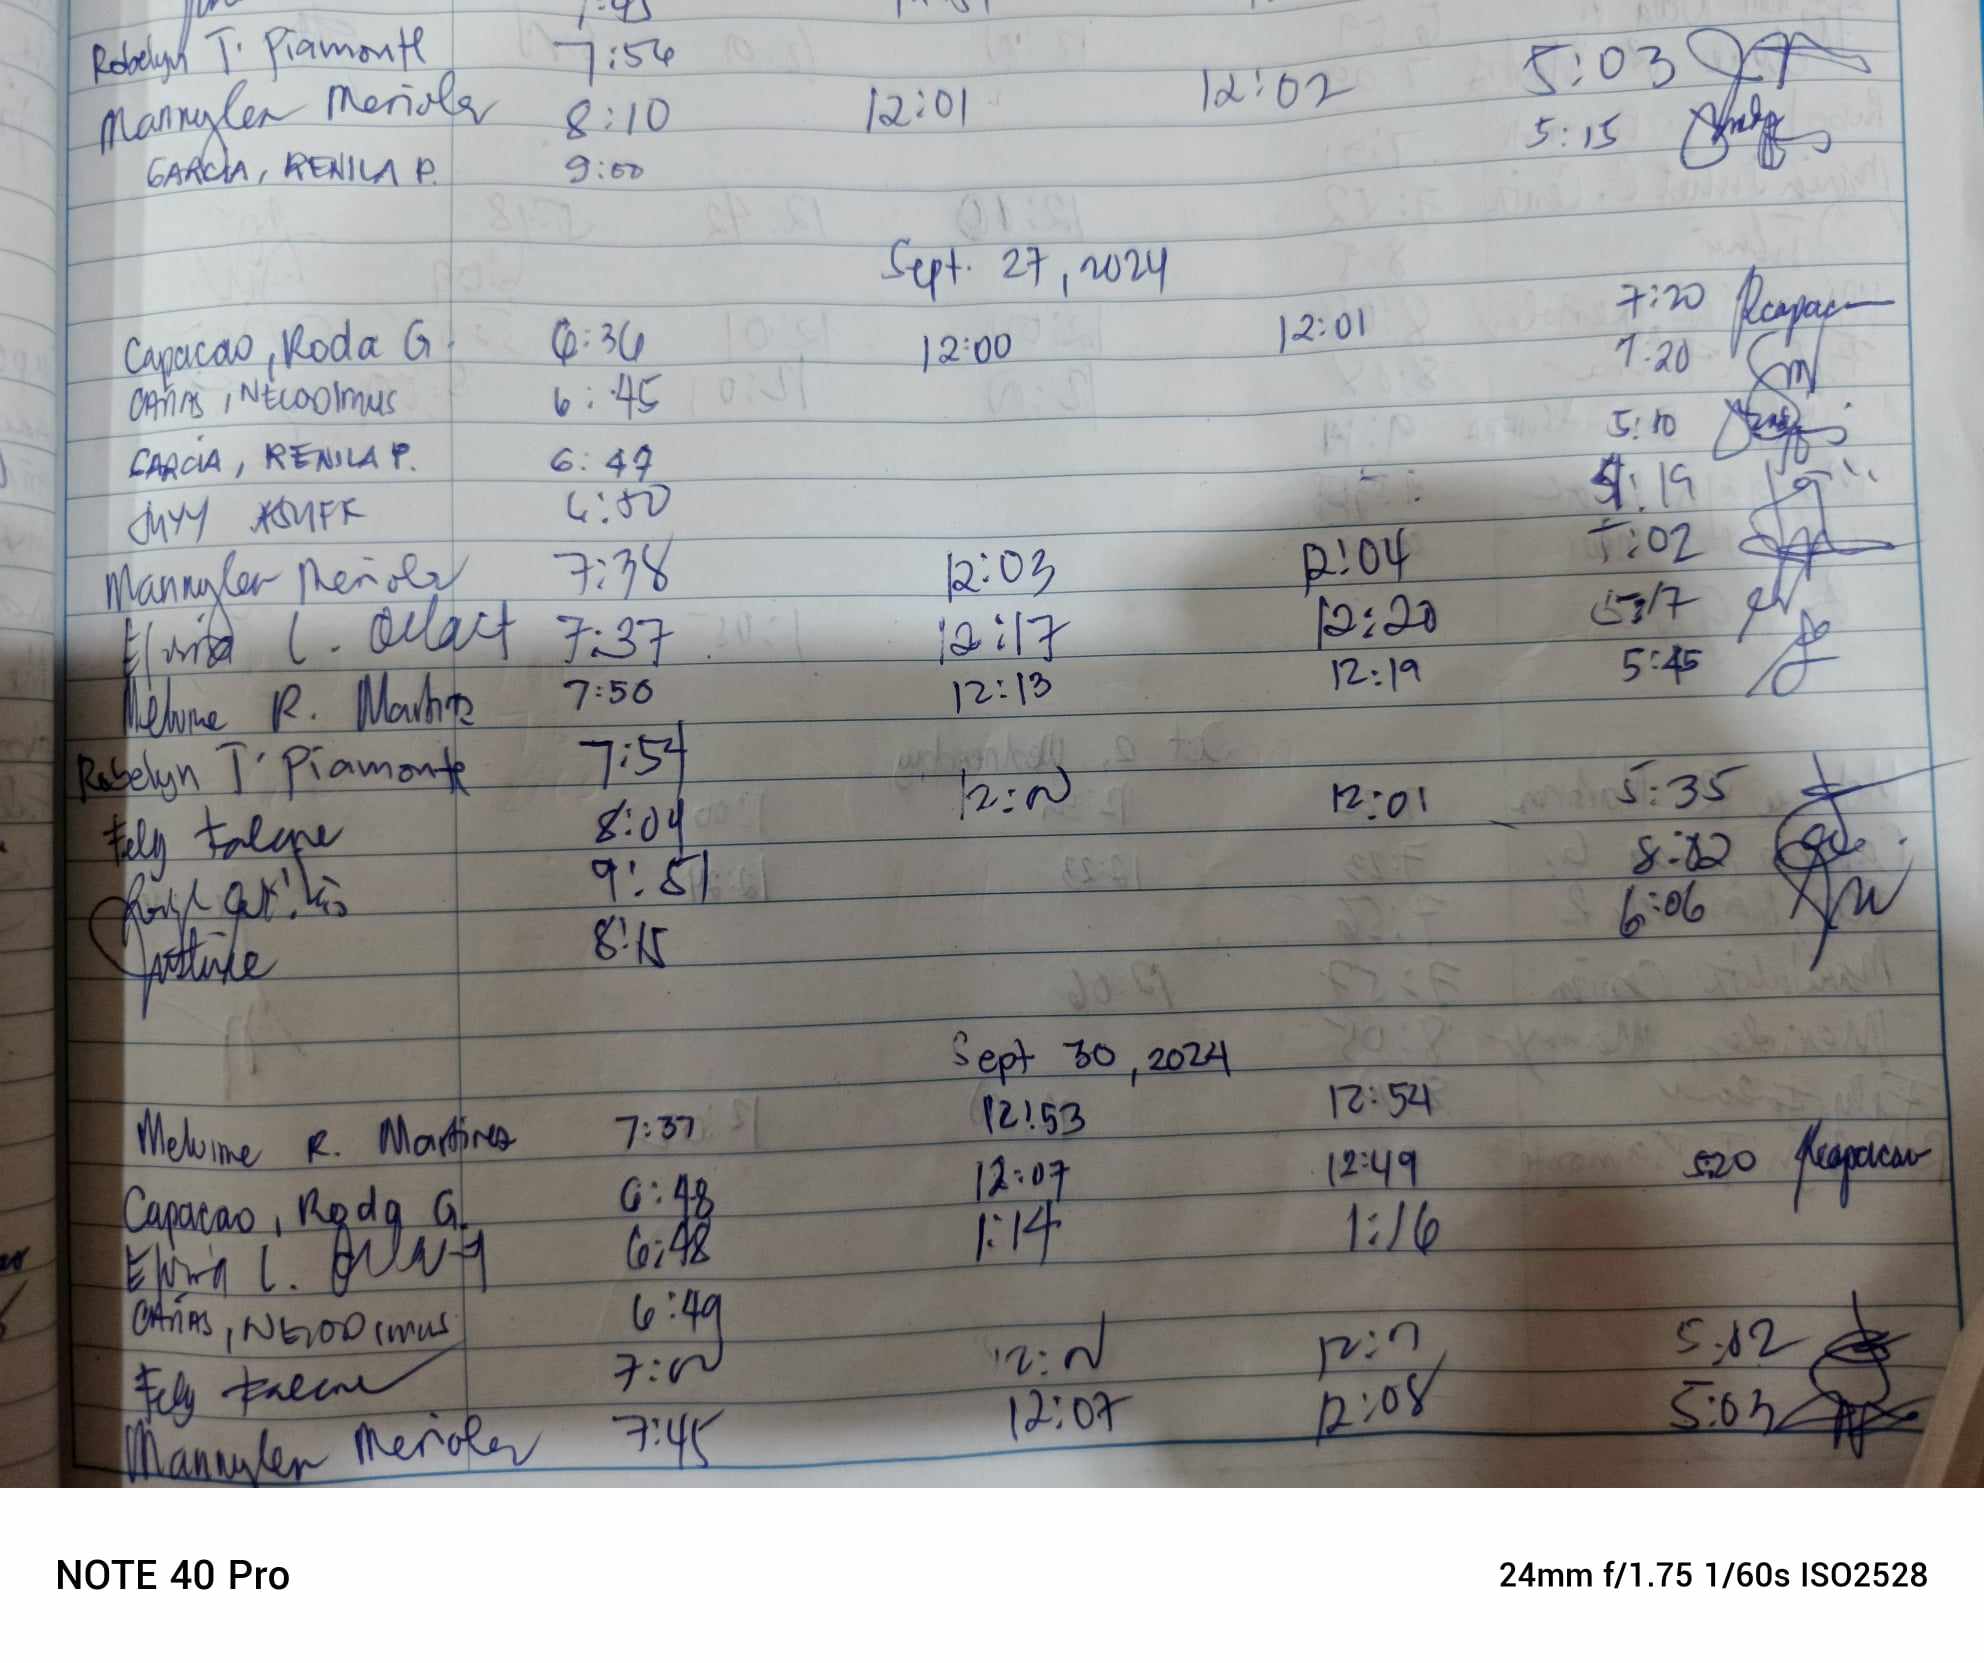 Robelyn T. Piamonte 7:54
Mannylen Meriola 8:10 12:01 12:02 5:03
GARCIA, RENILA P. 9:00 5:15
Sept. 27, 2024
Capacao, Roda G. 6:36 12:00 12:01 7:20 Rcapac
CAÑAS, NECODIMUS 6:45 7:20
GARCIA, RENILA P. 6:47 5:10
6:50 :19
Mannylen Meñola 7:38 12:03 12:04 5:02
Elvira L. 7:37 12:17 12:20 5:17
Melvine R. Martinez 7:50 12:13 12:19 5:45
Robelyn T. Piamonte 7:54
Fely 8:04 12:N 12:01 5:35
9:51 8:02
Justine 8:15 6:06
Sept 30, 2024
Melvine R. Martinez 7:37 12:53 12:54
Capacao, Roda G. 6:48 12:07 12:49 5:20 Rcapacao
Elvira L. 6:48 1:14 1:16
CAÑAS, NECODIMUS 6:49
Fely 7:N 12:N 12:N 5:02
Mannylen Meriola 7:45 12:07 12:08 5:03
NOTE 40 Pro
24mm f/1.75 1/60s ISO2528